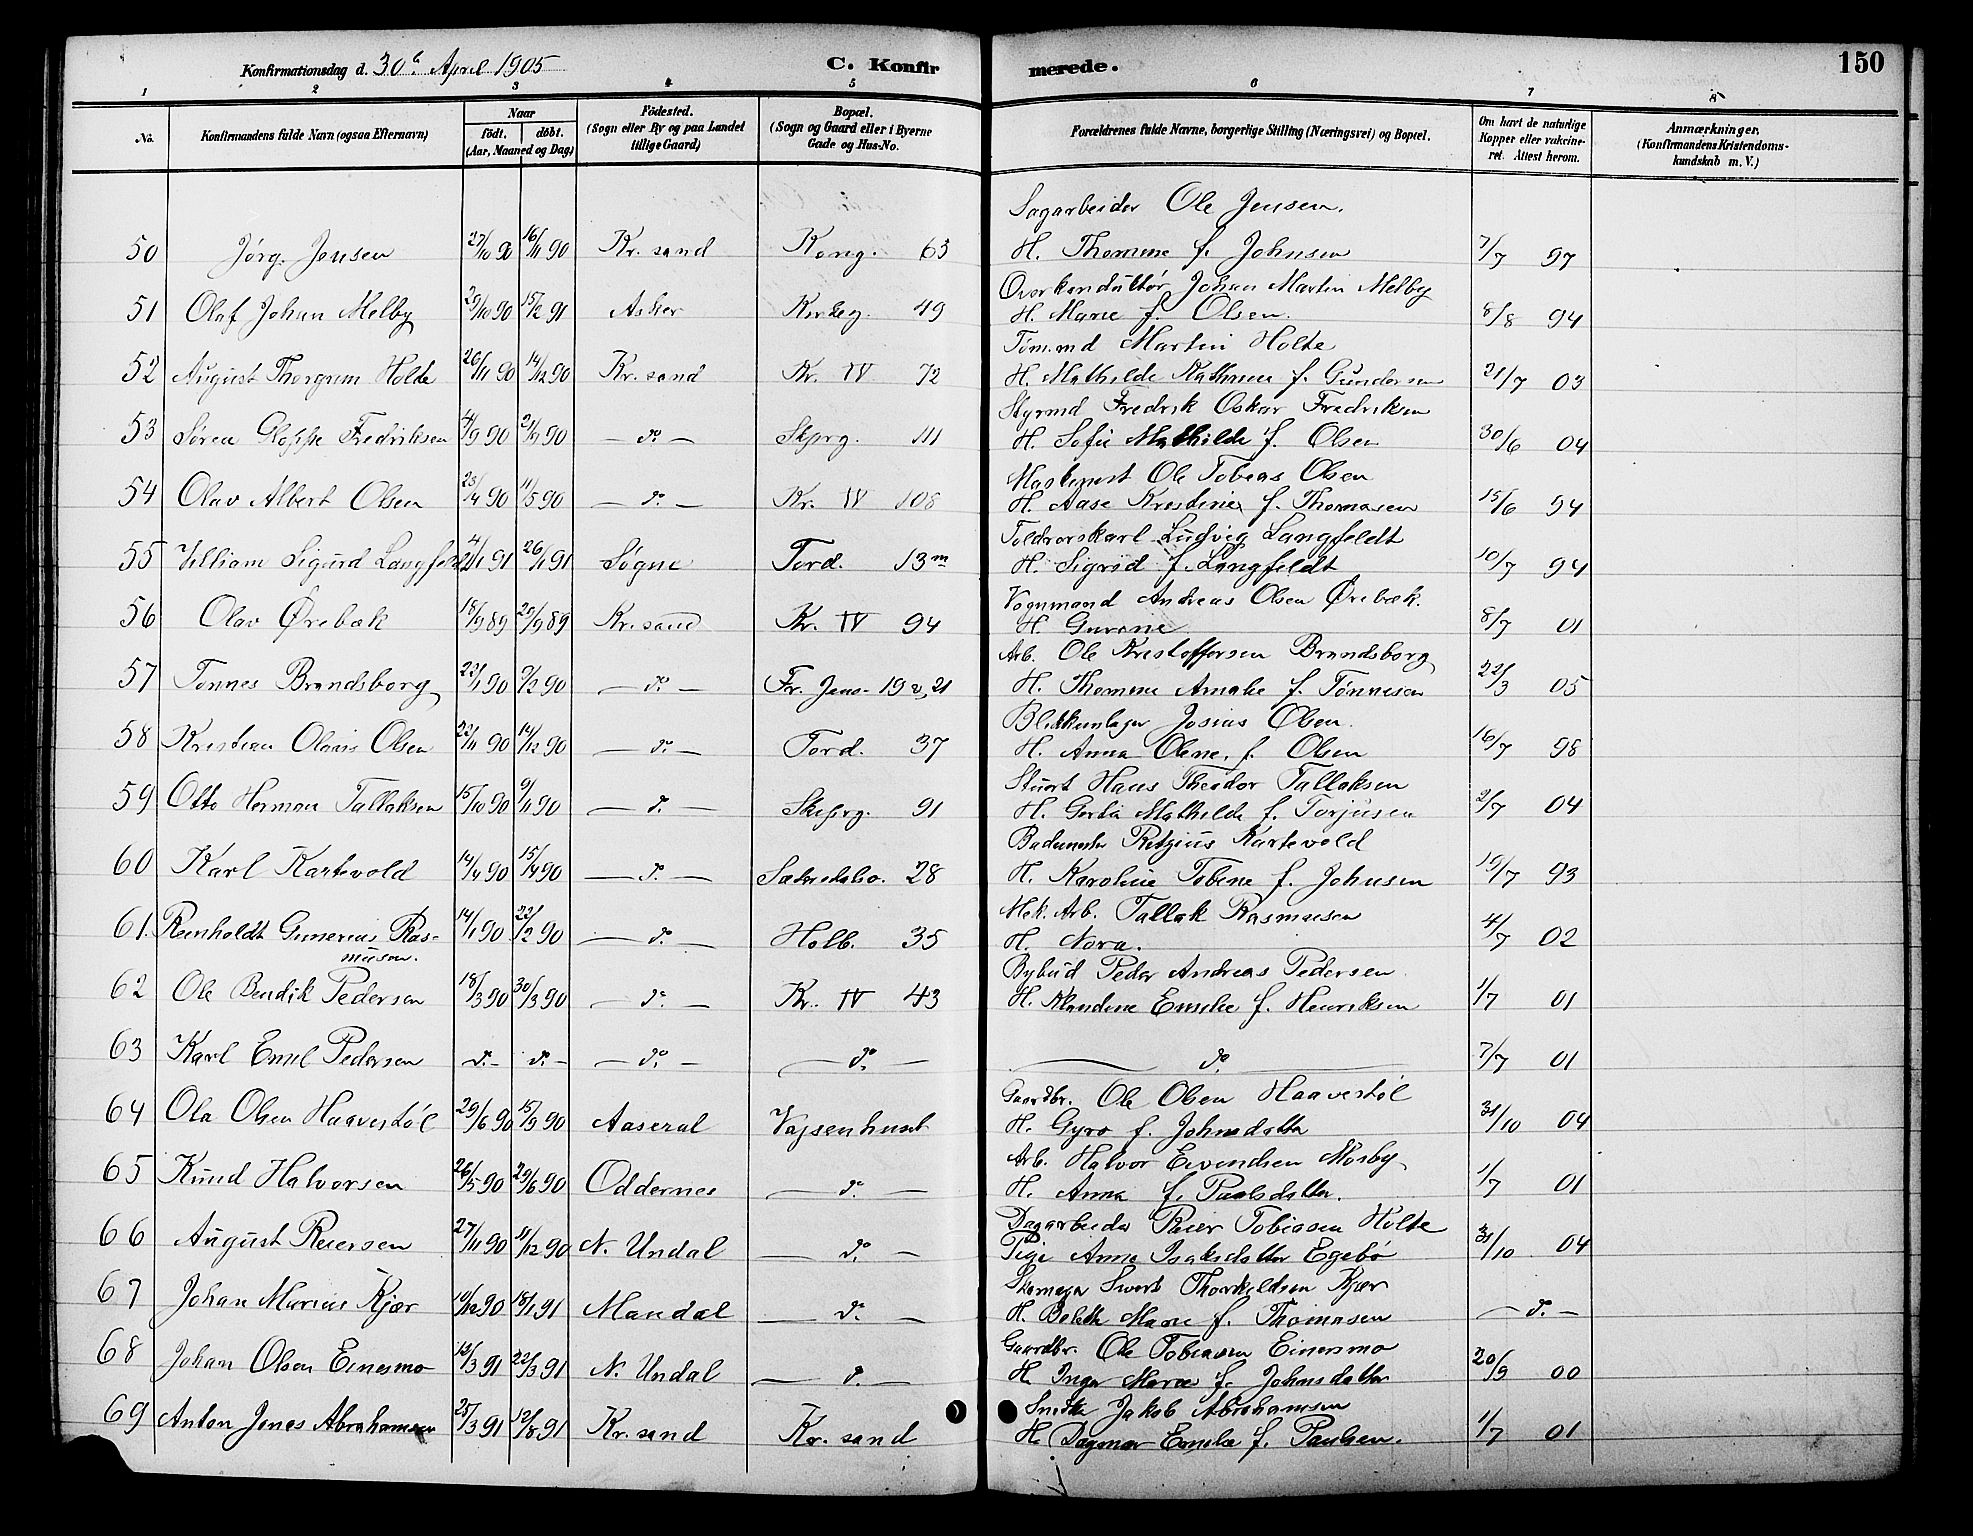 150
Konfirmationsdag d. 30te April 1905
C. Konfirmerede.
1 2 3 4 5 6 7 8
No. Konfirmandens fulde Navn (ogsaa Efternavn) Naar født. døbt. (Aar, Maaned og Dag) Födested. (Sogn eller By og paa Landet tillige Gaard) Bopæl. (Sogn og Gaard eller i Byerne Gade og Hus-No. Forældrenes fulde Navne, borgerlige Stilling (Næringsvei) og Bopæl. Om havt de naturlige Kopper eller vakcineret. Attest herom. Anmærkninger. (Konfirmandens Kristendomskundskab m. V.)
Sagarbeider Ole Jensen.
50 Jörg. Jensen 27/10 90 16/11 90 Kr. sand Kong. 63 H. Thomine f. Johnsen 7/7 97
Overkonduktør Johan Martin Melby
51 Olaf Johan Melby 29/10 90 15/2 91 Asker Kirkeg. 49 H. Marie f. Olsen. 8/8 94
Tømmd Martin Holte
52 August Thorgrim Holte 26/11 90 14/12 90 Kr. sand Kr. IV 72 H. Mathilde Kathrine f. Gundersen 21/7 03
Styrmd Fredrik Oskar Fredriksen
53 Søren Gloppe Fredriksen 4/9 90 21/9 90 — do — Skprg. 111 H. Sofie Mathilde f. Olsen 30/6 04
Ole Tobias Olsen
54 Olav Albert Olsen 23/4 90 11/5 90 — do — Kr. IV 108 H. Aase Kristine f. Thomasen 15/6 94
Toldrorskarl Ludvig Langfeldt
55 Villiam Sigurd Langfeldt 91 26/1 91 Søgne Tord. 13m H. Sigrid f. Langfeldt 10/7 94
Vognmand Andreas Olsen Ørebæk.
56 Olav Ørebæk 18/9 89 29/9 89 Kr. sand Kr. IV 94 H. Gurine 8/7 01
Arb. Ole Kristoffersen Brandsborg
57 Tønnes Brandsborg 22/1 90 9/2 90 — do — Fr. Jens- 19 v, 21 H. Thomine Amalie f. Tönnesen 22/3 05
Blikkenslager Josias Olsen.
58 Kristian Olavis Olsen 22/11 90 14/12 90 — do — Tord. 37 H. Anna Oline, f. Olsen 16/7 98
Stuert Hans Theodor Tallaksen
59 Otto Herman Tallaksen 15/10 90 9/11 90 — do — Skiprg. 91 H. Gertia Mathilde f. Torjusen 2/7 04
Bademester Retzius Kartevold
60 Karl Kartevold 14/4 90 15/4 90 — do — Sætersdalsv. 28 H. Karoline Tobine f. Johnsen 19/7 93
Mek. Arb. Tallak Rasmussen
61. Reinholdt Gunerius Ras- 14/1 90 22/2 90 — do — Holb. 35 H. Nora. 4/7 02
mussen.
Bybud Peder Andreas Pedersen
62 Ole Bendik Pedersen 18/3 90 30/3 90 — do — Kr. IV 43 H. Klandine Emilie f. Henriksen 1/7 01
63 Karl Emil Pedersen do — do — — do — — do — — do — 7/7 01
Gaardbr. Ole Olsen Haavestöl
64 Ola Olsen Haavestöl 29/6 90 15/9 90 Aaseral Vajsenhuset H. Gyro f. Johnsdatter 31/10 04
Arb. Halvor Eivindsen Mosby
65 Knud Halvorsen 26/5 90 29/6 90 Oddernes — do — H. Anna f. Paulsdatter. 1/7 01
Dagarbeider Reier Tobiasen Holte
66 August Reiersen 27/11 90 11/12 90 N. Undal — do — Pige Anna Isaksdatter Egebø 31/10 04
Skomager Sivert Thorkildsen Kjær
67 Johan Marius Kjær 10/12 90 18/1 91 Mandal — do — H. Marie f. Thomasen — do —
Gaardbr. Ole Tobiasen Einersmo
68 Johan Olsen Einesmo 12/3 91 22/3 91 N. Undal — do — H. Inger Marie f. Johnsdatter 20/9 00
Snedker Jakob Abrahamsen
69 Anton Jenes Abrahamsen 25/3 91 12/8 91 Kr. sand Kr. sand H. Dagmar Emilie f. Paulsen. 1/7 01